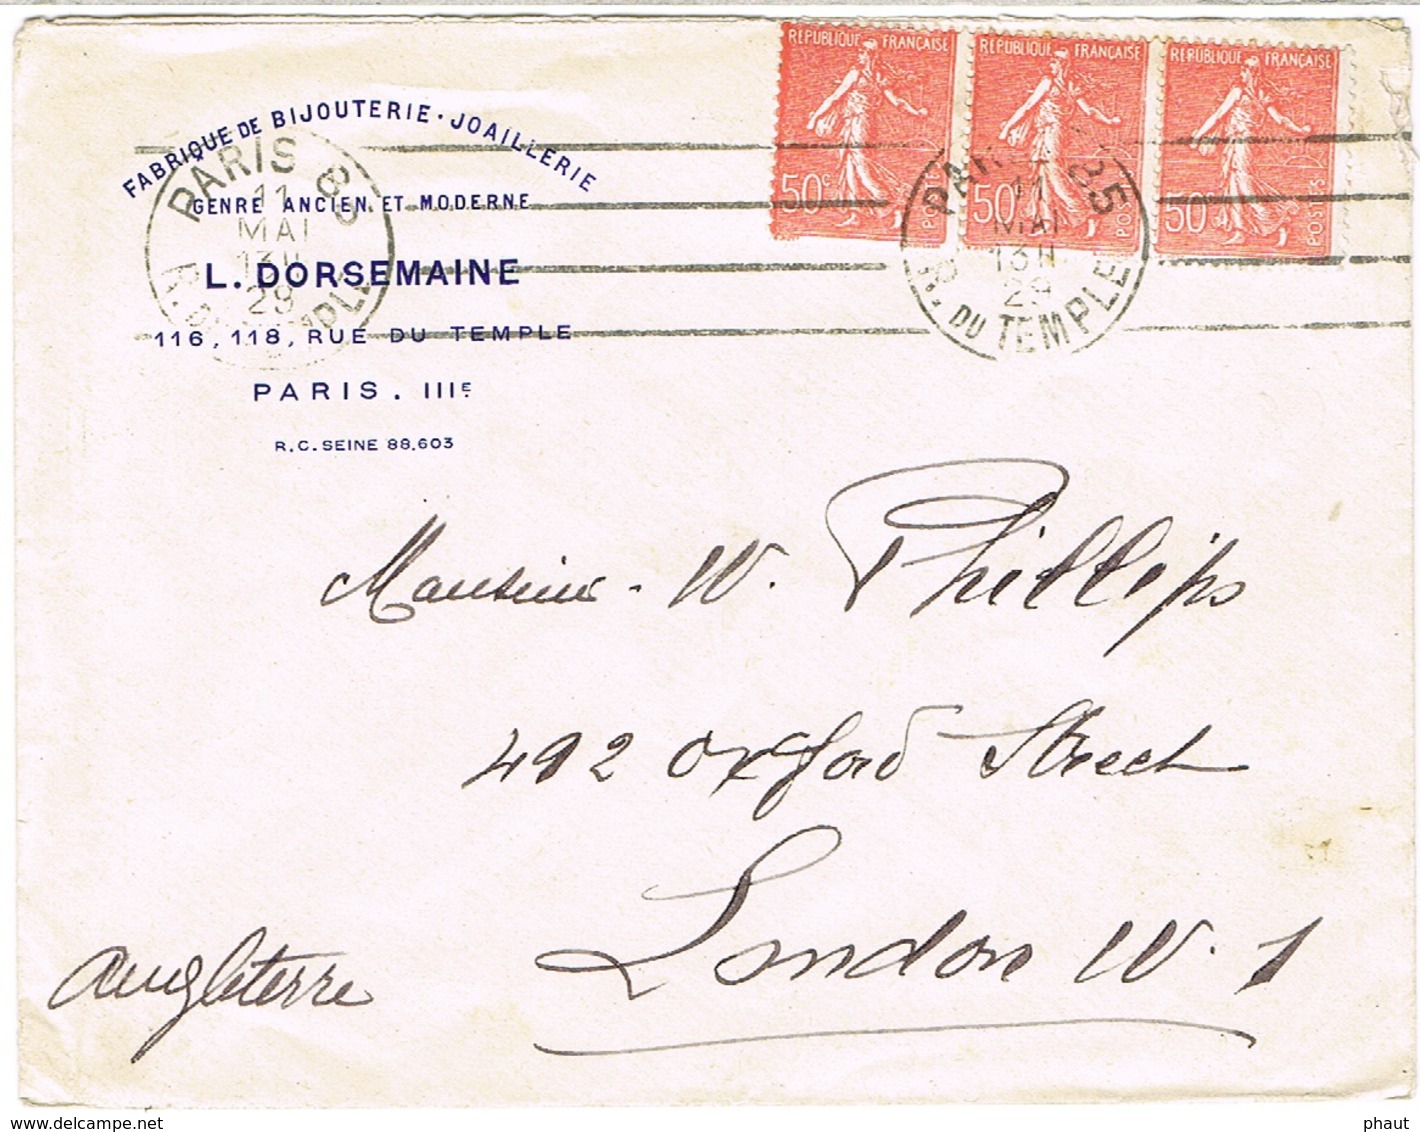 FABRIQUE DE BIJOUTERIE · JOAILLERIE
GENRE ANCIEN ET MODERNE
L. DORSEMAINE
116, 118, RUE DU TEMPLE
PARIS . IIIE
R.C. SEINE 88.603
PARIS 85
11
MAI
13H
29
R. DU TEMPLE
RÉPUBLIQUE FRANÇAISE
50c
POSTES
RÉPUBLIQUE FRANÇAISE
50c
POSTES
RÉPUBLIQUE FRANÇAISE
50c
POSTES
PARIS 85
11
MAI
13H
29
R. DU TEMPLE
Monsieur W. Phillips
492 Oxford Street
London W. 1
Angleterre
www.delcampe.net
phaut